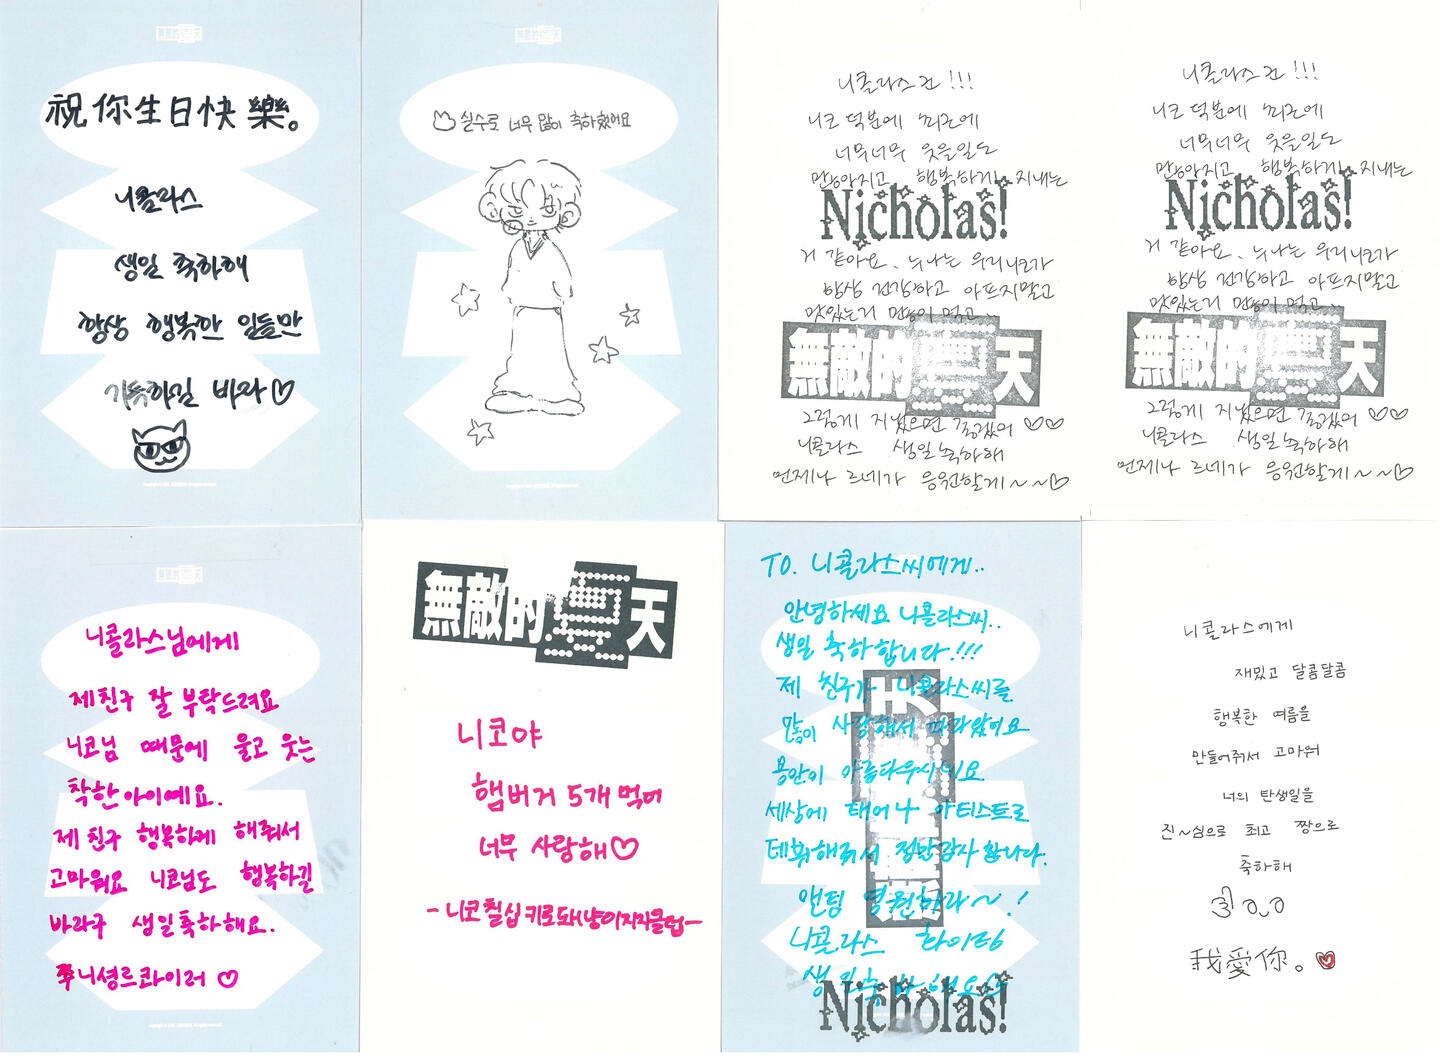 祝你生日快樂。
니콜라스
생일 축하해
항상 행복한 일들만
가득하길 바라♡
실수로 너무 많이 축하했어요
니콜라스 !!!
니코 덕분에
너무너무 웃을일도
많아지고 행복하게 지내는
Nicholas!
거 같아요. 누나는 우리니코가
항상 건강하고 아프지말고
맛있는거 많이 먹고..
無敵的夏天
그렇게 지냈으면 좋겠어 ♡♡
니콜라스 생일축하해
언제나 르네가 응원할게~~♡
니콜라스 !!!
니코 덕분에
너무너무 웃을일도
많아지고 행복하게 지내는
Nicholas!
거 같아요. 누나는 우리니코가
항상 건강하고 아프지말고
맛있는거 많이 먹고..
無敵的夏天
그렇게 지냈으면 좋겠어 ♡♡
니콜라스 생일축하해
언제나 르네가 응원할게~~♡
니콜라스님에게
제친구 잘 부탁드려요
니코님 때문에 울고 웃는
착한아이예요.
제 친구 행복하게 해줘서
고마워요 니코님도 행복하길
바라구 생일축하해요.
無敵的夏天
니코야
햄버거 5개 먹어
너무 사랑해♡
TO. 니콜라스씨에게..
안녕하세요 니콜라스씨..
생일 축하합니다.!!!
제 친구가 니콜라스씨를
많이 사랑해서 따라왔어요
용안이 아름다우시네요
세상에 태어나 아티스트로
데뷔해줘서 정말감사합니다.
앤팀 영원하라~!
니콜라스 화이팅
생일축하해요
Nicholas!
니콜라스에게
재밌고 달콤달콤
행복한 여름을
만들어줘서 고마워
너의 탄생일을
진~심으로 최고 짱으로
축하해
我愛你。